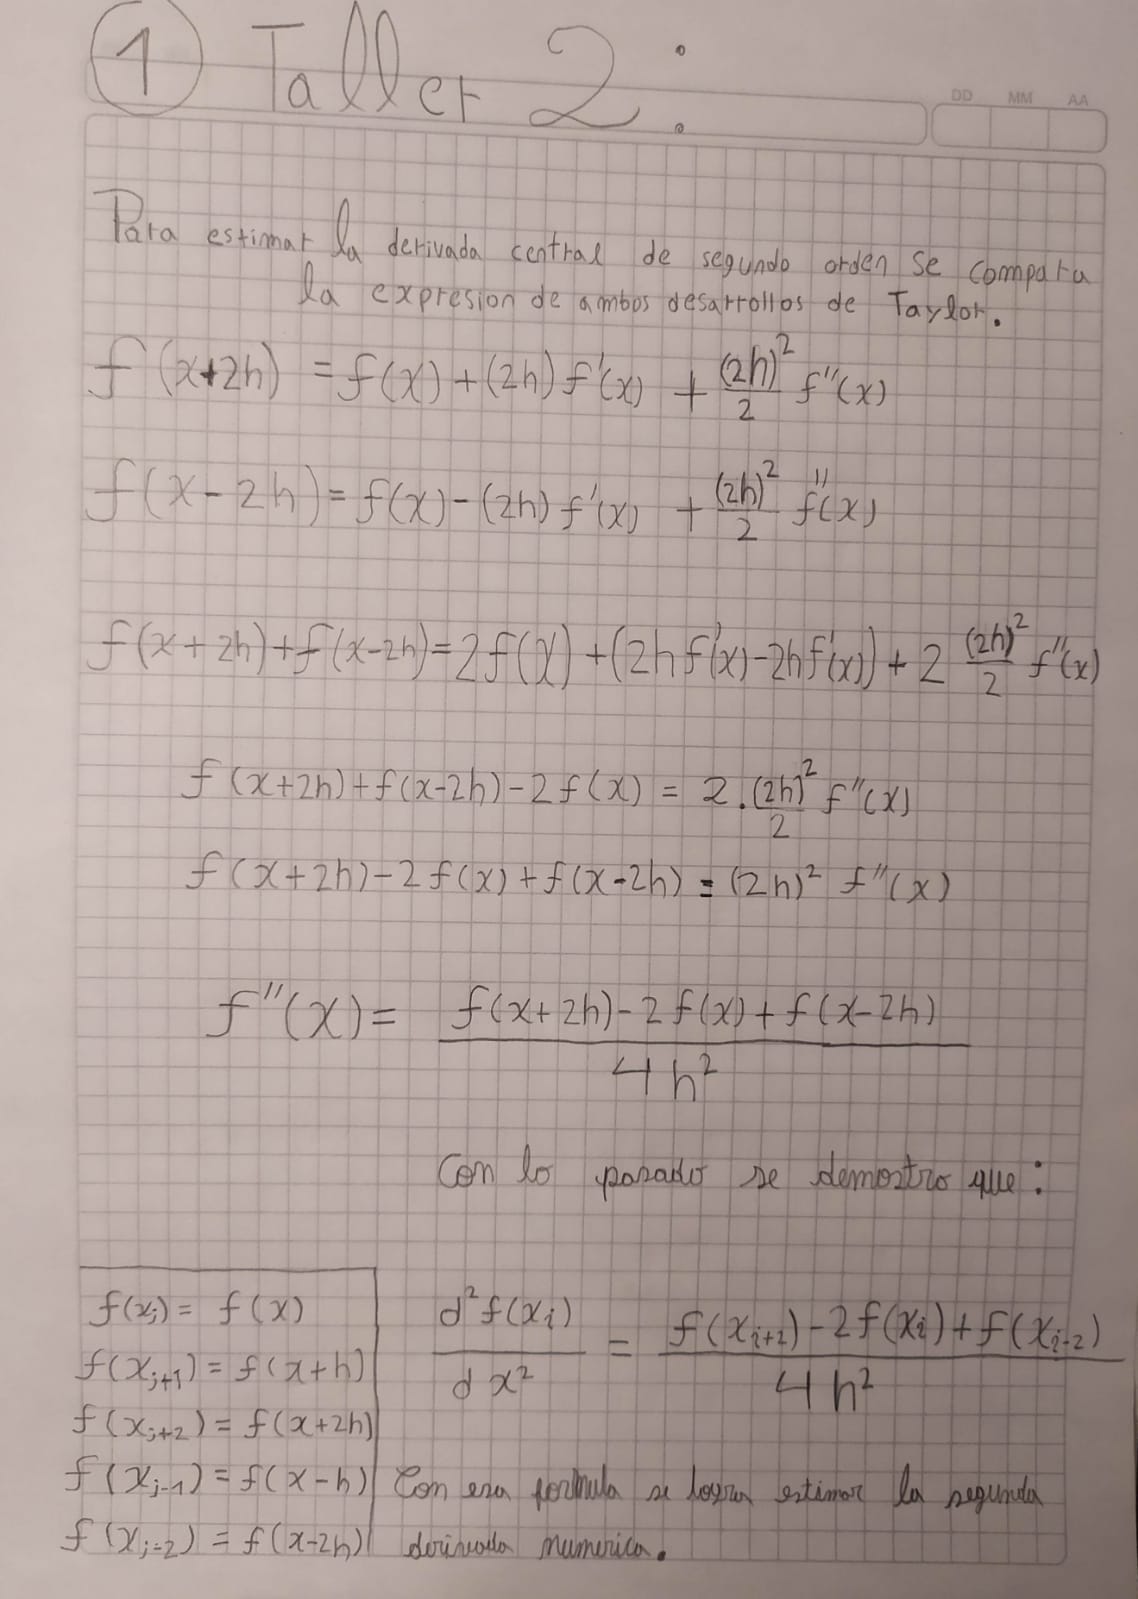 1 Taller 2:
DD MM AA
Para estimar la derivada central de segundo orden se compara
la expresion de ambos desarrollos de Taylor.
f(x+2h) = f(x) + (2h) f'(x) + (2h)²/2 f''(x)
f(x-2h) = f(x) - (2h) f'(x) + (2h)²/2 f''(x)
f(x+2h)+f(x-2h)=2f(x)+(2hf'(x)-2hf'(x))+2 (2h)²/2 f''(x)
f(x+2h)+f(x-2h)-2f(x) = 2.(2h)²/2 f''(x)
f(x+2h)-2f(x)+f(x-2h) = (2h)² f''(x)
f''(x) = f(x+2h)-2f(x)+f(x-2h) / 4h²
Con lo pasado se demostro que:
f(xi) = f(x)
f(xi+1) = f(x+h)
f(xi+2) = f(x+2h)
f(xi-1) = f(x-h)
f(xi-2) = f(x-2h)
d²f(xi)/dx² = f(xi+2)-2f(xi)+f(xi-2) / 4h²
Con esa formula se logra estimar la segunda
derivada numerica.